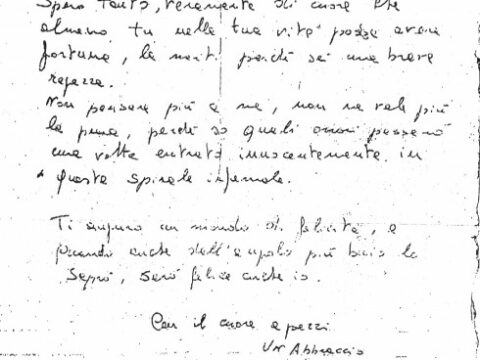 Spero tanto, veramente di cuore che
almeno tu nella tua vita possa avere
fortuna, la meriti perchè sei una brava
ragazza.
Non pensare più a me, non ne vale più
la pena, perchè so quali passerò
una volta entrato innocentemente in
questa spirale infernale.
Ti auguro un mondo di felicità, e
quando anche dall'angolo più buio lo
saprò, sarò felice anche io.
Con il cuore a pezzi
Un Abbraccio